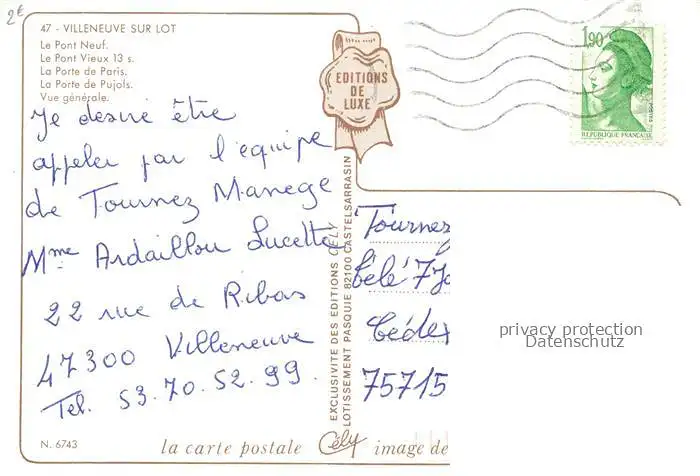 2€
47 - VILLENEUVE SUR LOT
Le Pont Neuf.
Le Pont Vieux 13 s.
La Porte de Paris.
La Porte de Pujols.
Vue générale.
EDITIONS
DE
LUXE
1,90
REPUBLIQUE FRANÇAISE
Je desire être
appeler par l'equipe
de Tournez Manege
Mme Ardaillou Lucette
22 rue de Ribas
47300 Villeneuve
Tel. 53.70.52.99.
EXCLUSIVITE DES EDITIONS CELY
LOTISSEMENT PASQUIE 82100 CASTELSARRASIN
Tournez
Cédex
75715
privacy protection
Datenschutz
N. 6743
la carte postale Cély image de